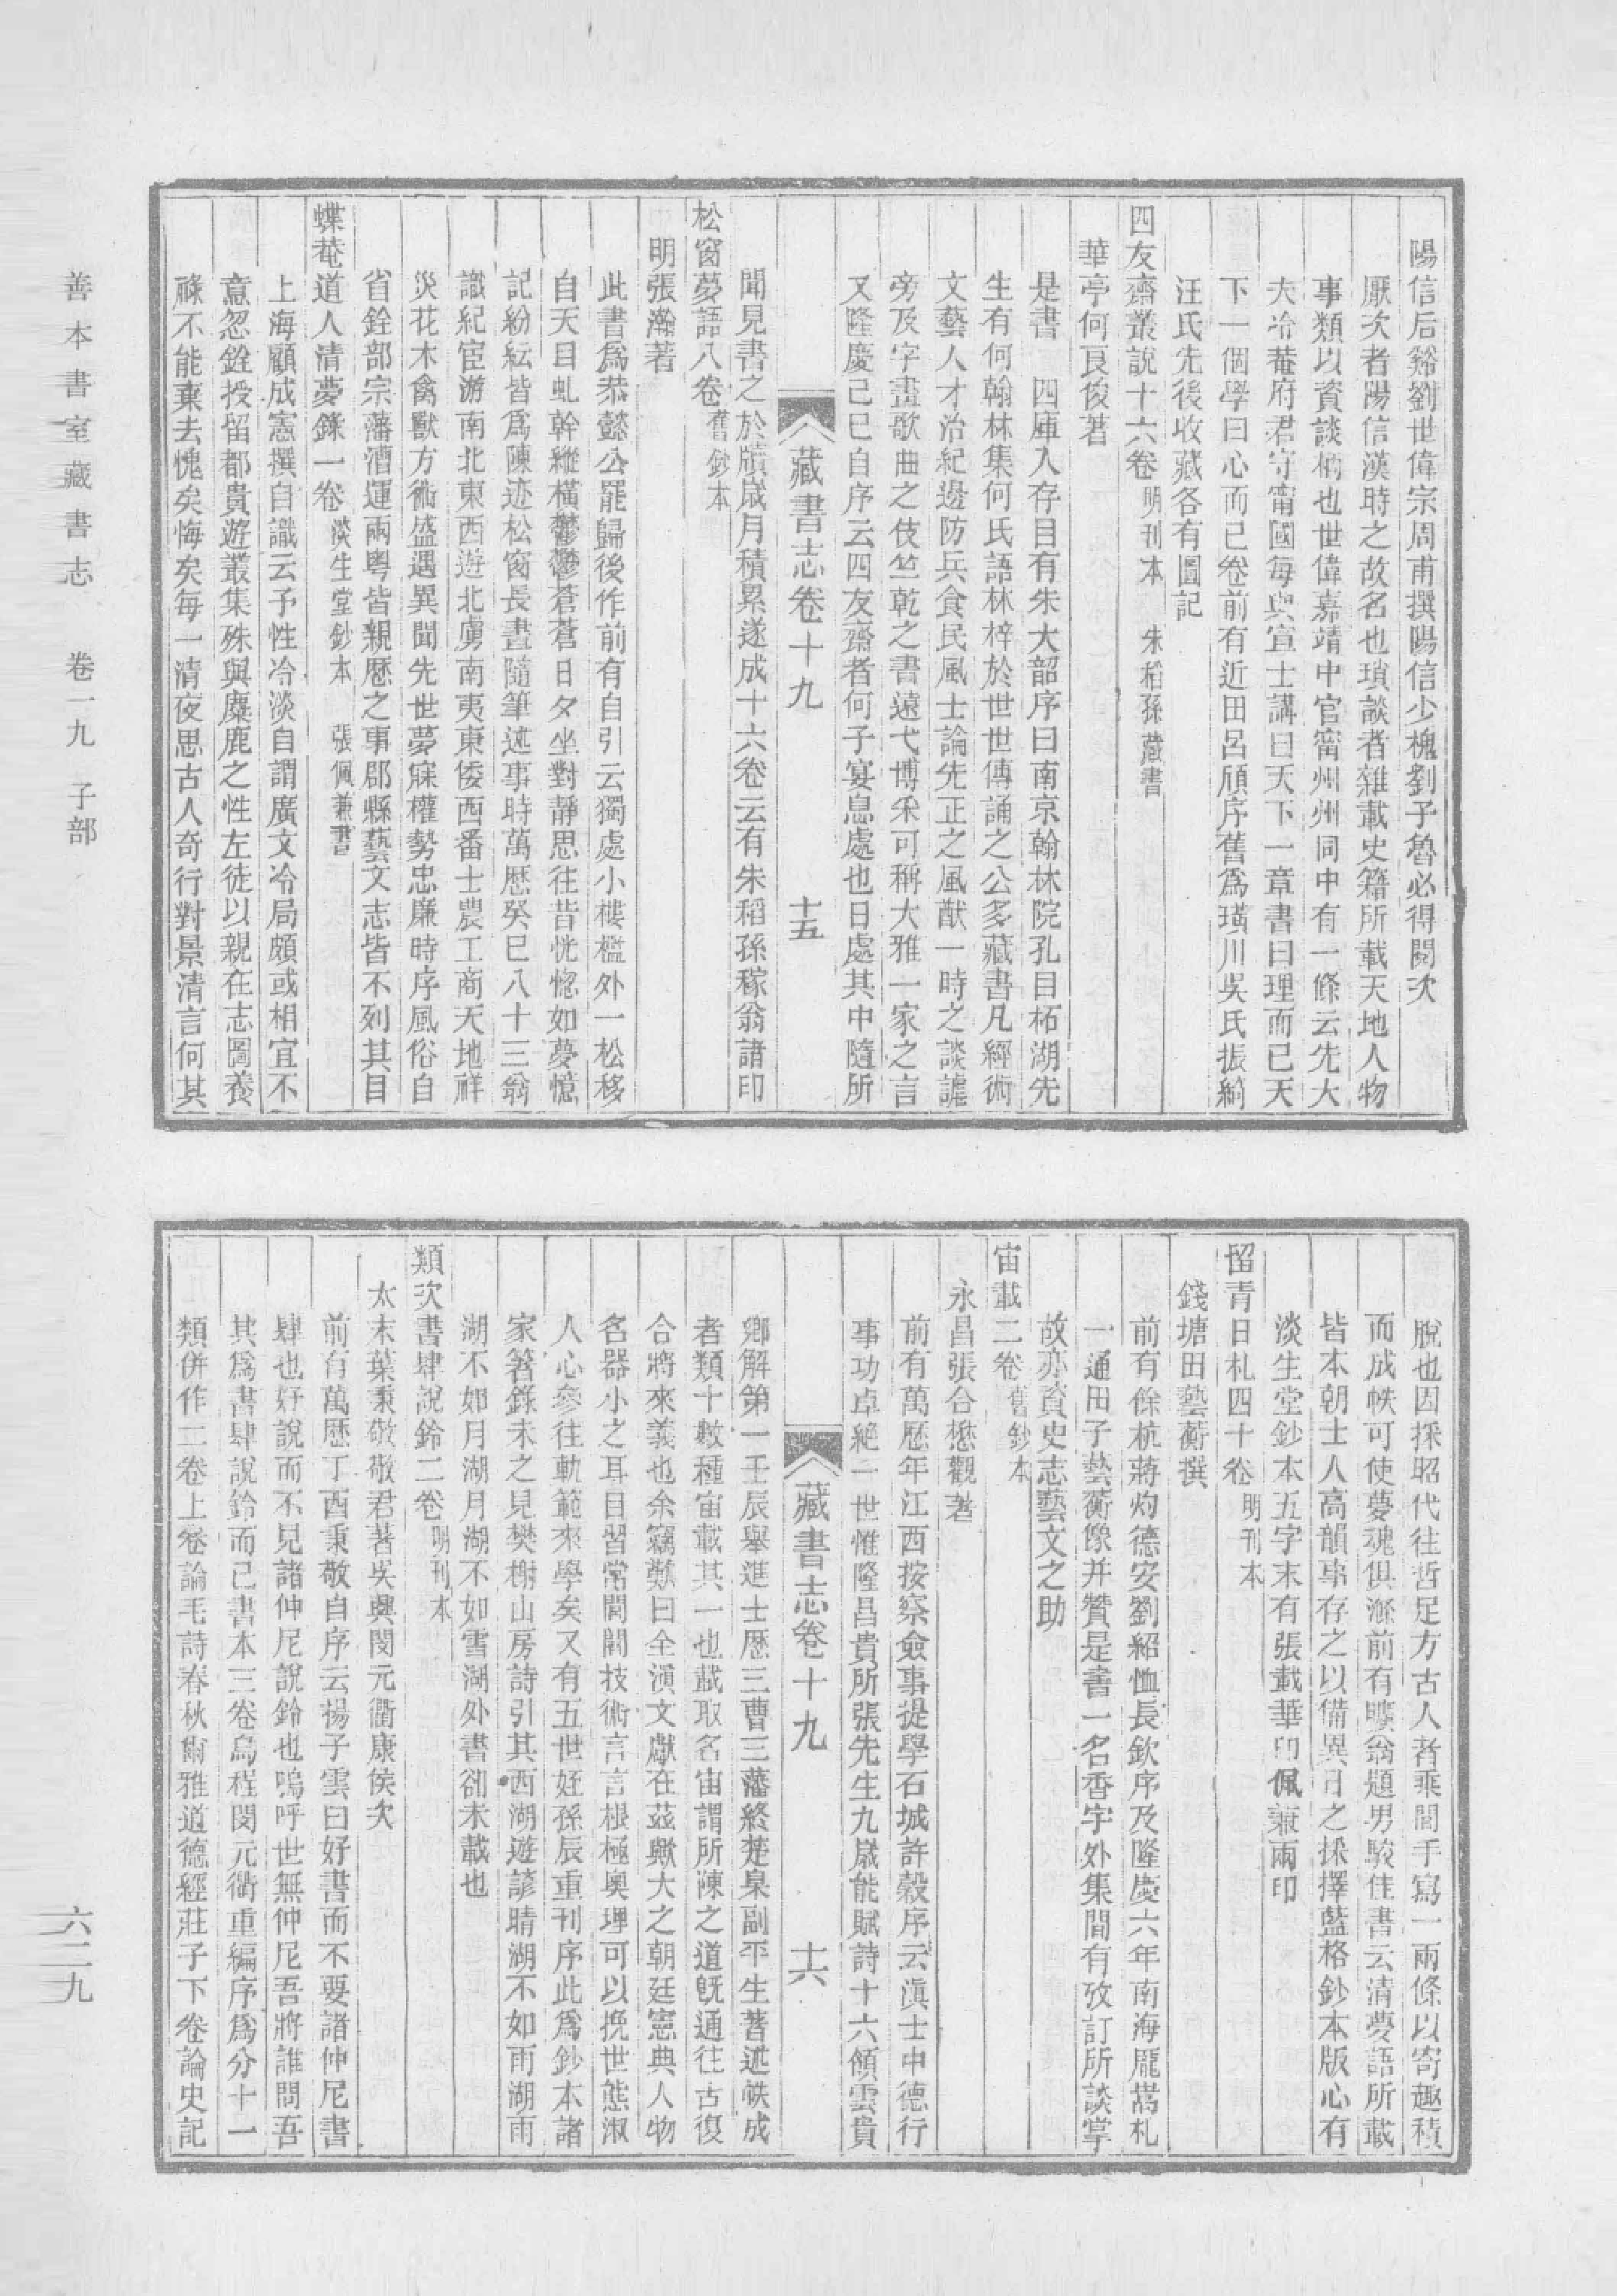 陽信后谿劉世偉宗周甫撰陽信少槐劉子魯必得閱次
厭次者陽信漢時之故名也瑣談者雜載史籍所載天地人物
事類以資談柄也世偉嘉靖中官甯州州同中有一條云先大
夫冷菴府君守甯國每與宣士講曰天下一章書曰理而已天
下一個學曰心而已卷前有近田呂頎序舊爲璜川吳氏振綺
汪氏先後收藏各有圖記
四友齋叢說十六卷 明刊本 朱稻孫藏書
華亭何良俊著
是書 四庫入存目有朱大韶序曰南京翰林院孔目柘湖先
生有何翰林集何氏語林梓於世世傳誦之公多藏書凡經術
文藝人才治紀邊防兵食民風士論先正之風猷一時之談謔
旁及字畫歌曲之伎竺乾之書遠弋博采可稱大雅一家之言
又隆慶己巳自序云四友齋者何子宴息處也日處其中隨所
藏書志卷十九 十五
聞見書之於牘歲月積累遂成十六卷云有朱稻孫稼翁諸印
松窗夢語八卷 舊鈔本
明張瀚著
此書爲恭懿公罷歸後作前有自引云獨處小樓檻外一松移
自天目虬幹縱橫鬱鬱蒼蒼日夕坐對靜思往昔恍惚如夢憶
記紛紜皆爲陳迹松窗長晝隨筆述事時萬歷癸巳八十三翁
識紀宦游南北東西遊北虜南夷東倭西番士農工商天地祥
災花木禽獸方術盛遇異聞先世夢寐權勢忠廉時序風俗自
省銓部宗藩漕運兩粵皆親歷之事郡縣藝文志皆不列其目
蝶菴道人清夢錄一卷 淡生堂鈔本 張佩兼書
上海顧成憲撰自識云予性冷淡自謂廣文冷局頗或相宜不
意忽銓授留都貴遊叢集殊與麋鹿之性左徒以親在志圖養
祿不能棄去愧矣悔矣每一清夜思古人奇行對景清言何其
脫也因採昭代往哲足方古人者乘閒手寫一兩條以寄趣積
而成帙可使夢魂俱滌前有曠翁題男駿佳書云清夢語所載
皆本朝士人高韻事存之以備異日之採擇藍格鈔本版心有
淡生堂鈔本五字末有張載華印佩兼兩印
留青日札四十卷 明刊本
錢塘田藝蘅撰
前有餘杭蔣灼德安劉紹恤長欽序及隆慶六年南海龐嵩札
一通田子藝蘅像并贊是書一名香宇外集間有攷訂所談掌
故亦資史志藝文之助
宙載二卷 舊鈔本
永昌張合懋觀著
前有萬歷年江西按察僉事提學石城許穀序云滇士中德行
事功卓絕一世惟隆昌貴所張先生九歲能賦詩十六領雲貴
藏書志卷十九 十六
鄉解第一壬辰舉進士歷三曹三藩終楚臬副平生著述帙成
者類十數種宙載其一也載取名宙謂所陳之道旣通往古復
合將來義也余竊歎曰全滇文獻在茲歟大之朝廷憲典人物
名器小之耳目習常閭閻技術言言根極奧理可以挽世態淑
人心參往軌範來學矣又有五世姪孫辰重刊序此爲鈔本諸
家著錄未之見樊榭山房詩引其西湖遊諺晴湖不如雨湖雨
湖不如月湖月湖不如雪湖外書卻未載也
類次書肆說鈴二卷 明刊本
太末葉秉敬敬君著吳興閔元衢康侯次
前有萬歷丁酉秉敬自序云揚子雲曰好書而不要諸仲尼書
肆也好說而不見諸仲尼說鈴也嗚呼世無仲尼吾將誰問吾
其爲書肆說鈴而已書本三卷烏程閔元衢重編序爲分十一
類併作二卷上卷論毛詩春秋爾雅道德經莊子下卷論史記
善本書室藏書志 卷一九 子部
六二九